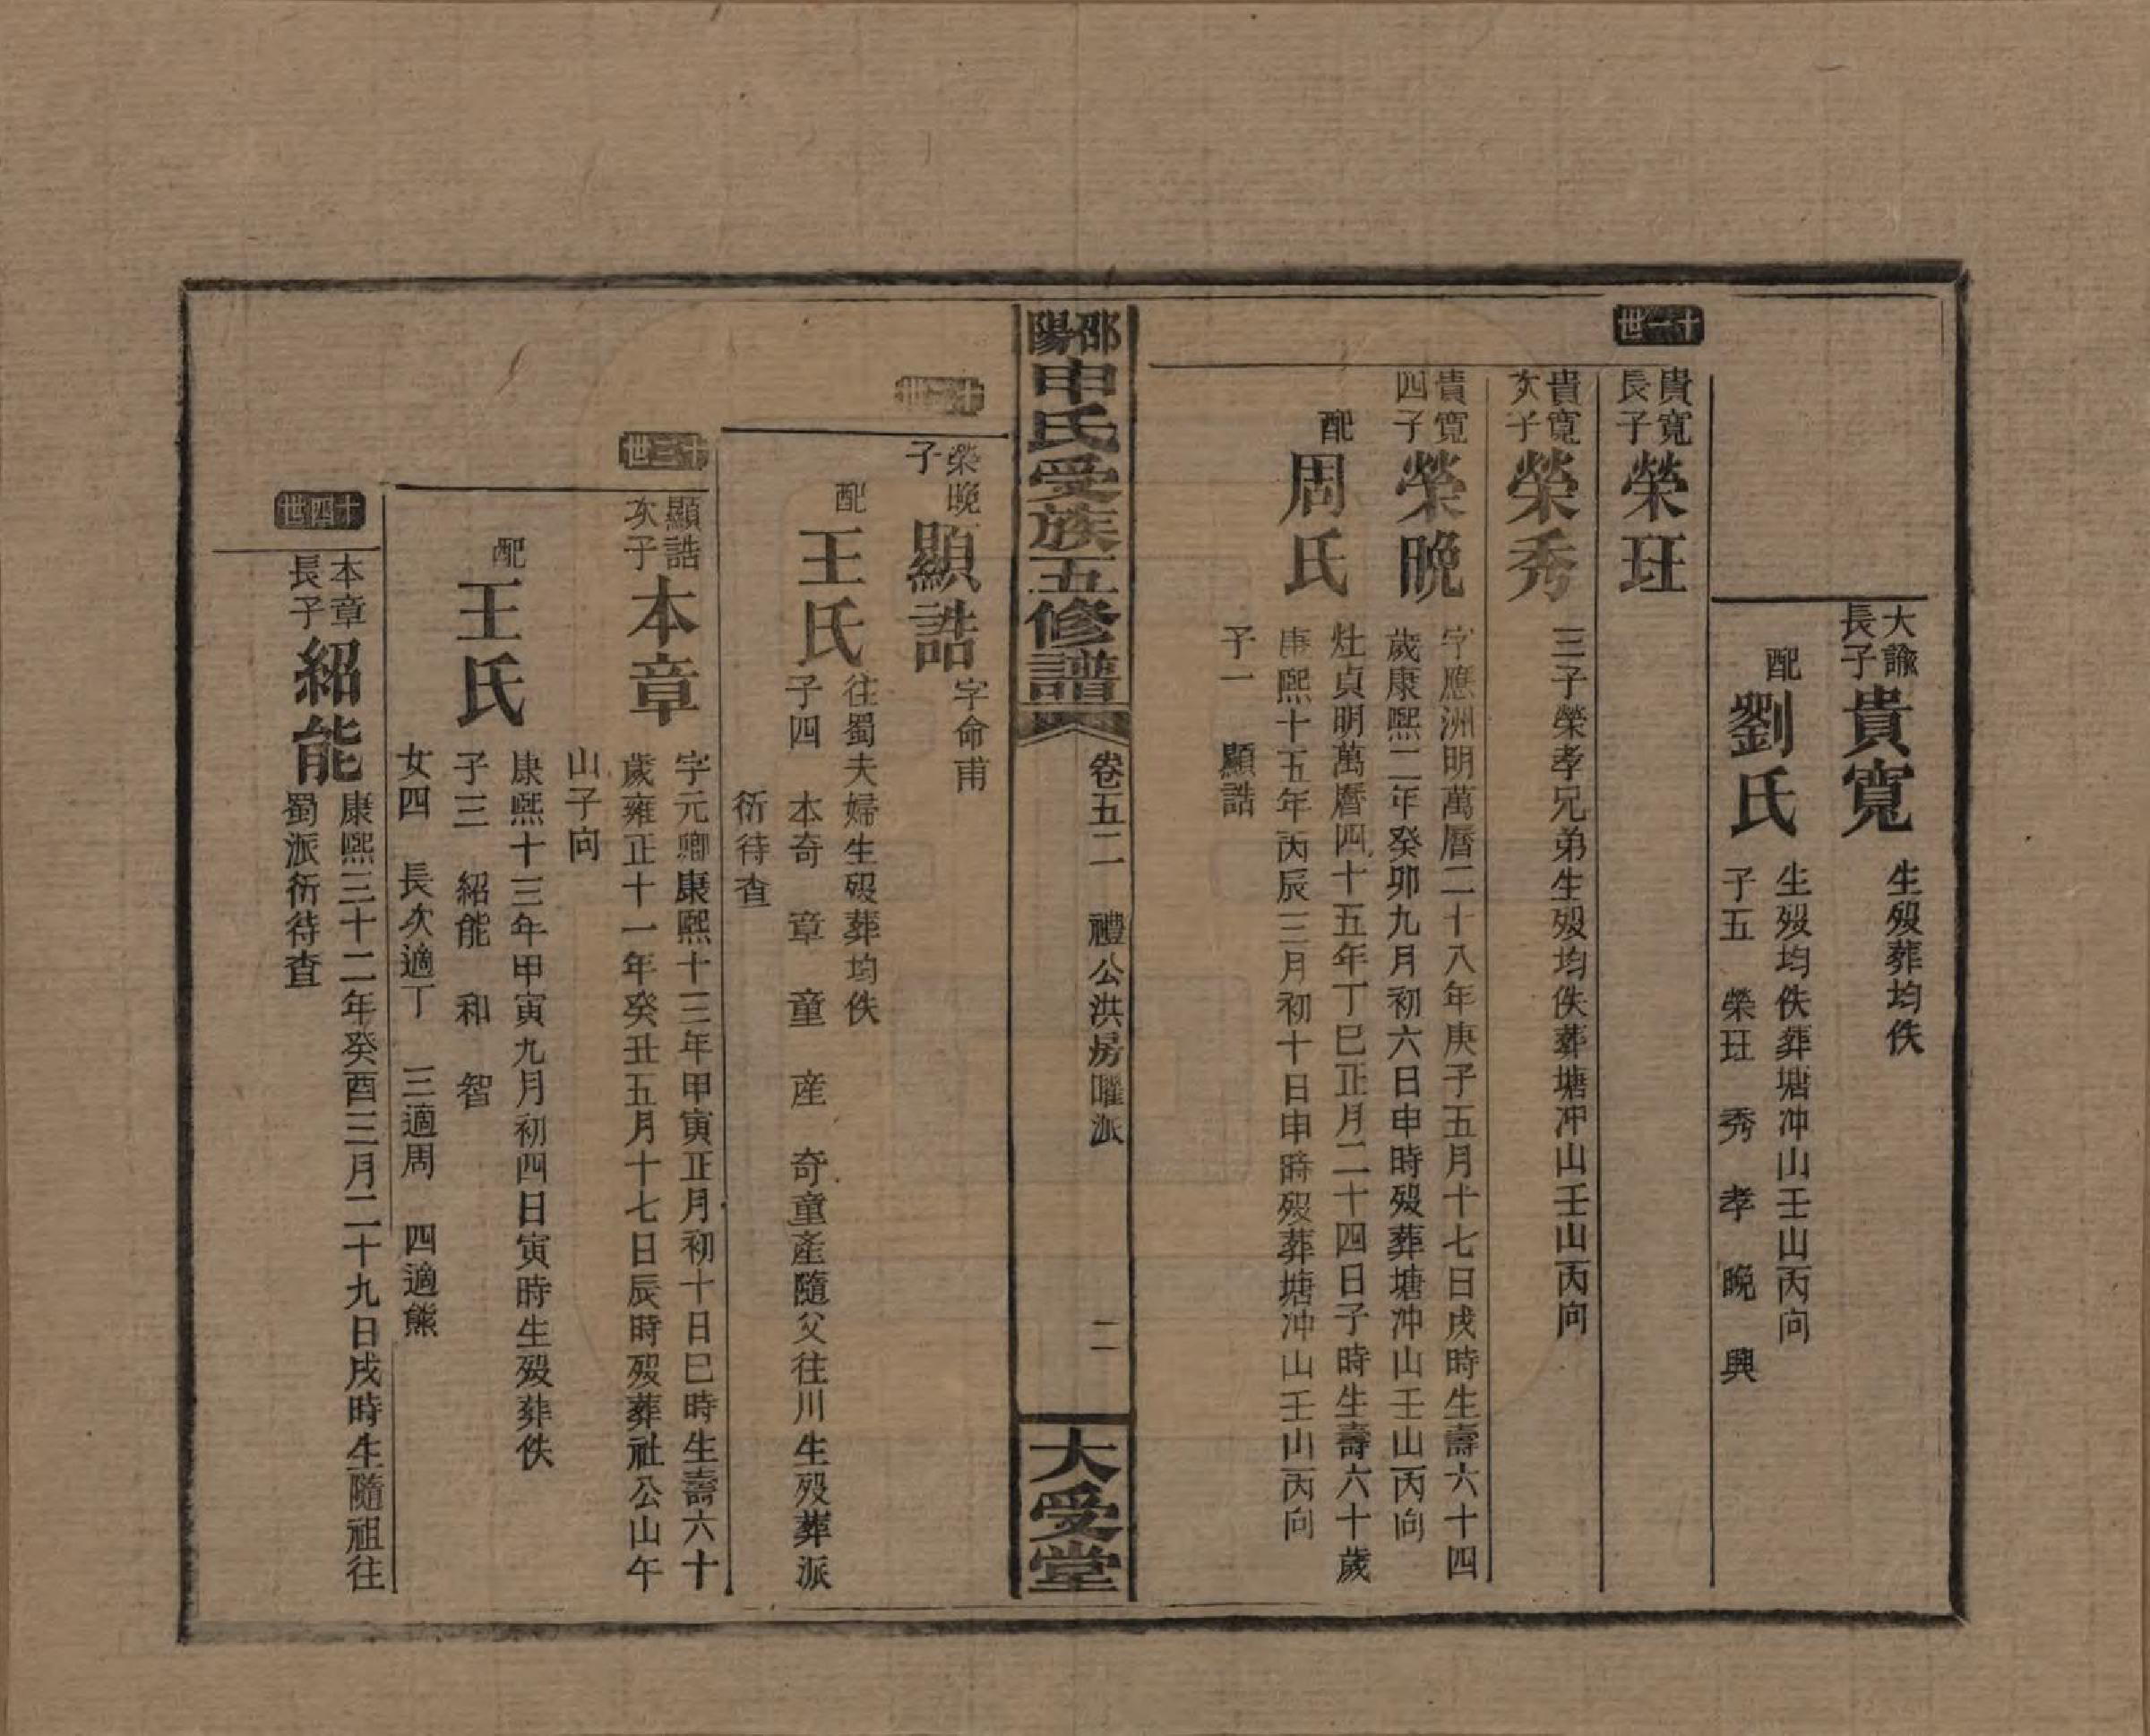 大諭長子
貴寬
生歿葬均佚
配
劉氏
生歿均佚葬塘冲山壬山丙向
子五 榮玨 秀 孝 晚 興
十一世
貴寬長子
榮玨
貴寬次子
榮秀
三子榮孝兄弟生歿均佚葬塘冲山壬山丙向
貴寬四子
榮晚
字應洲明萬曆二十八年庚子五月十七日戌時生壽六十四
歲康熙二年癸卯九月初六日申時歿葬塘冲山壬山丙向
配
周氏
灶貞明萬曆四十五年丁巳正月二十四日子時生壽六十歲
康熙十五年丙辰三月初十日申時歿葬塘冲山壬山丙向
子一 顯誥
邵陽申氏受族五修譜
卷五二 禮公洪房曜派
二
大受堂
十二世
榮晚子
顯誥
字命甫
配
王氏
往蜀夫婦生歿葬均佚
子四 本奇 章 童 産 奇童産隨父往川生歿葬派
衍待查
十三世
顯誥次子
本章
字元卿康熙十三年甲寅正月初十日巳時生壽六十
歲雍正十一年癸丑五月十七日辰時歿葬社公山午
山子向
配
王氏
康熙十三年甲寅九月初四日寅時生歿葬佚
子三 紹能 和 智
女四 長次適丁 三適周 四適熊
十四世
本章長子
紹能
康熙三十二年癸酉三月二十九日戌時生隨祖往
蜀派衍待查